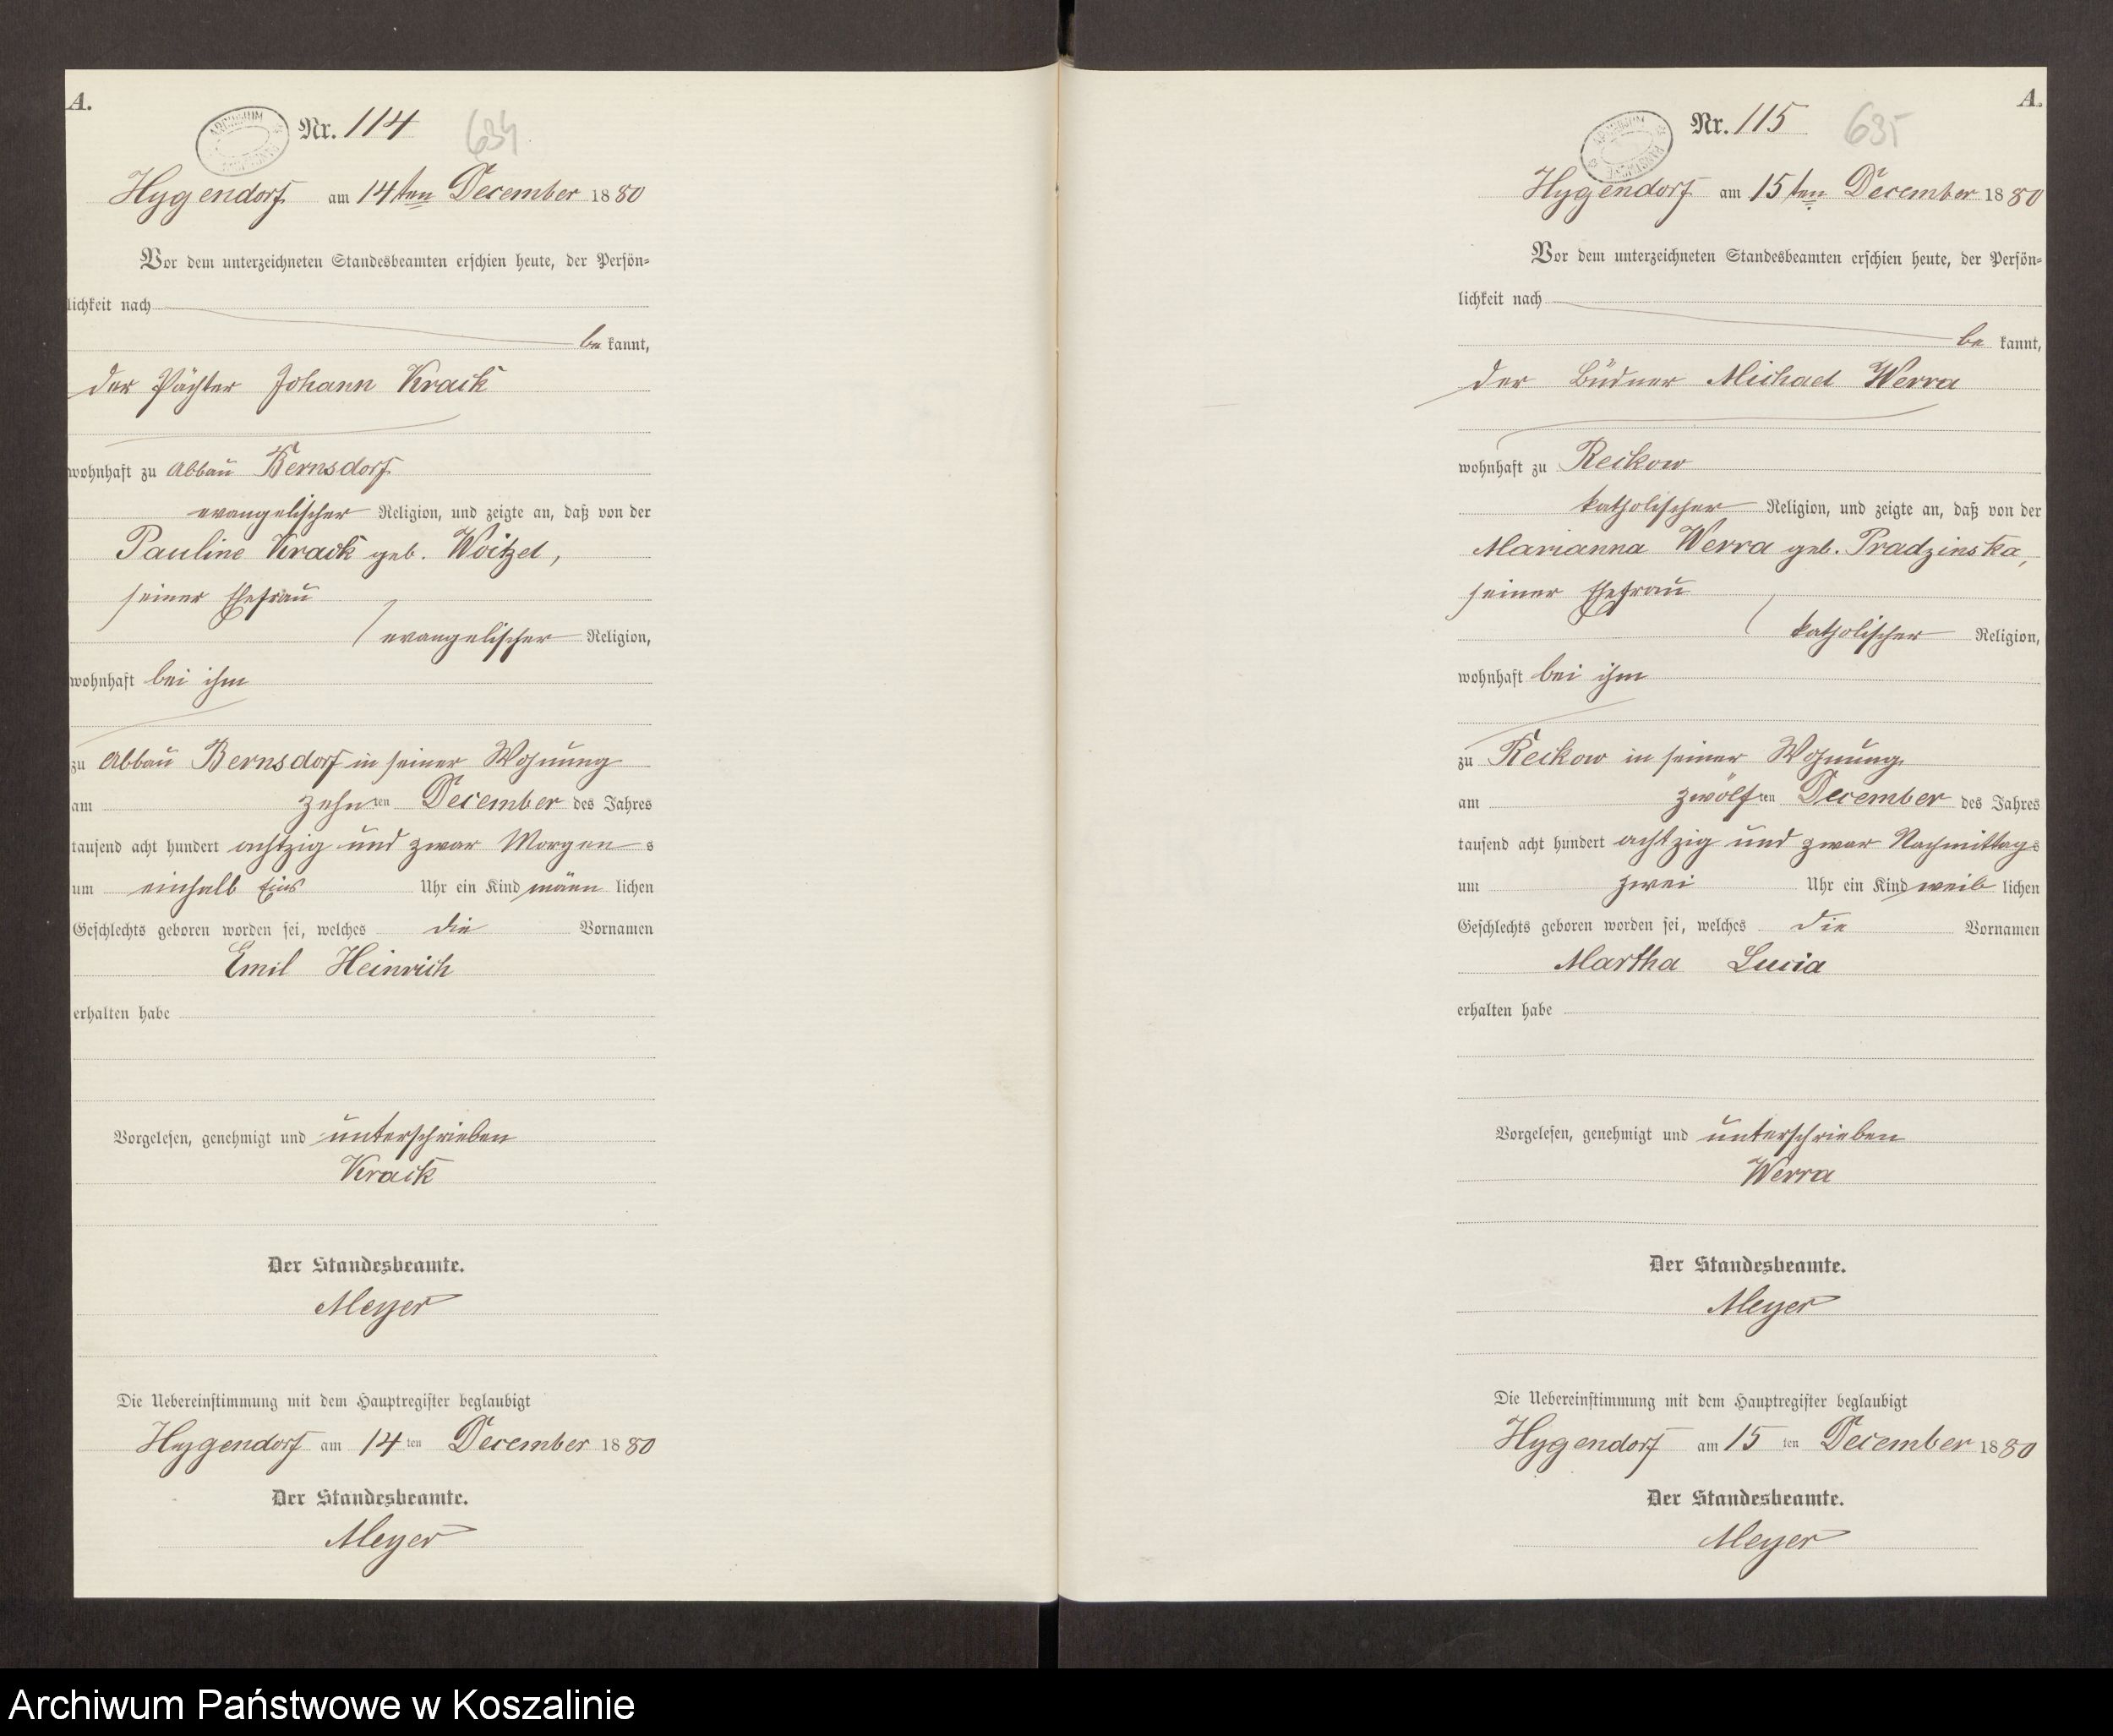 A.
ARCHIWUM
Nr. 114
634
Hygendorf am 14ten December 1880
Vor dem unterzeichneten Standesbeamten erschien heute, der Persön-
lichkeit nach
bekannt,
der Pächter Johann Krack
wohnhaft zu Abbau Bernsdorf
evangelischer Religion, und zeigte an, daß von der
Pauline Krack geb. Woitzel,
seiner Ehefrau
evangelischer Religion,
wohnhaft bei ihm
zu Abbau Bernsdorf in seiner Wohnung
am zehnten December des Jahres
tausend acht hundert achtzig und zwar Morgens
um einhalb Eins Uhr ein Kind männlichen
Geschlechts geboren worden sei, welches die Vornamen
Emil Heinrich
erhalten habe
Vorgelesen, genehmigt und unterschrieben
Krack
Der Standesbeamte.
Meyer
Die Uebereinstimmung mit dem Hauptregister beglaubigt
Hygendorf am 14ten December 1880
Der Standesbeamte.
Meyer
A.
ARCHIWUM
Nr. 115
635
Hygendorf am 15ten December 1880
Vor dem unterzeichneten Standesbeamten erschien heute, der Persön-
lichkeit nach
bekannt,
der Büdner Michael Werra
wohnhaft zu Reckow
katholischer Religion, und zeigte an, daß von der
Marianna Werra geb. Pradzinska,
seiner Ehefrau
katholischer Religion,
wohnhaft bei ihm
zu Reckow in seiner Wohnung
am zwölften December des Jahres
tausend acht hundert achtzig und zwar Nachmittags
um zwei Uhr ein Kind weiblichen
Geschlechts geboren worden sei, welches die Vornamen
Martha Lucia
erhalten habe
Vorgelesen, genehmigt und unterschrieben
Werra
Der Standesbeamte.
Meyer
Die Uebereinstimmung mit dem Hauptregister beglaubigt
Hygendorf am 15ten December 1880
Der Standesbeamte.
Meyer
Archiwum Państwowe w Koszalinie